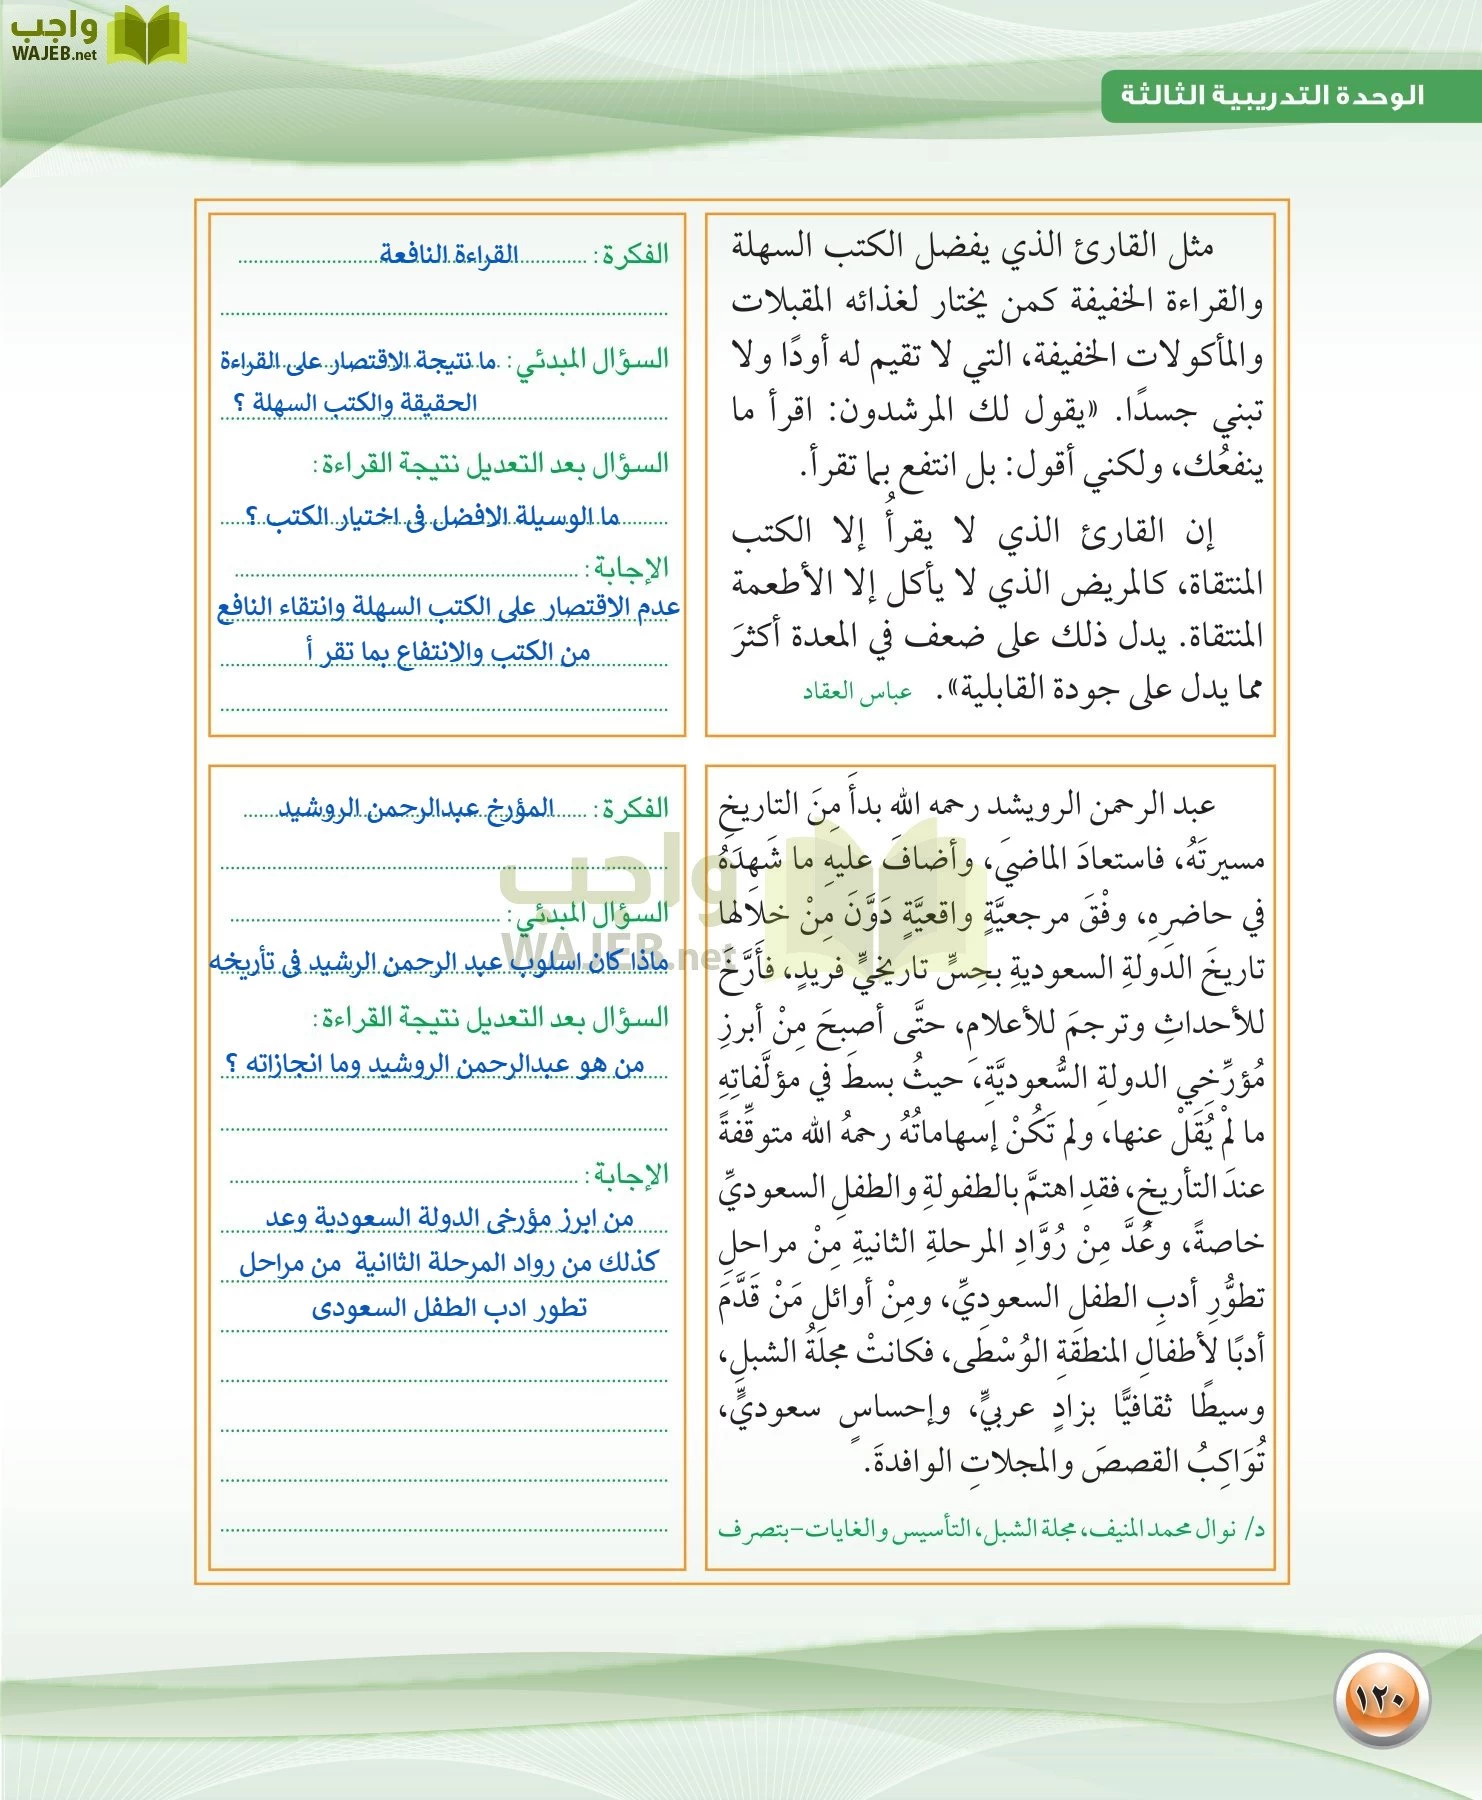 واجب
WAJEB.net
الوحدة التدريبية الثالثة
مثل القارئ الذي يفضل الكتب السهلة
والقراءة الخفيفة كمن يختار لغذائه المقبلات
والمأكولات الخفيفة، التي لا تقيم له أودًا ولا
تبني جسدًا. «يقول لك المرشدون: اقرأ ما
ينفعُك، ولكني أقول: بل انتفع بما تقرأ.
إن القارئ الذي لا يقرأُ إلا الكتب
المنتقاة، كالمريض الذي لا يأكل إلا الأطعمة
المنتقاة. يدل ذلك على ضعف في المعدة أكثرَ
مما يدل على جودة القابلية». عباس العقاد
الفكرة: القراءة النافعة
السؤال المبدئي: ما نتيجة الاقتصار على القراءة
الحقيقة والكتب السهلة ؟
السؤال بعد التعديل نتيجة القراءة:
ما الوسيلة الافضل فى اختيار الكتب ؟
الإجابة:
عدم الاقتصار على الكتب السهلة وانتقاء النافع
من الكتب والانتفاع بما تقر أ
عبد الرحمن الرويشد رحمه الله بدأَ مِنَ التاريخِ
مسيرتَهُ، فاستعادَ الماضيَ، وأضافَ عليهِ ما شَهِدَهُ
في حاضرِهِ، وفْقَ مرجعيَّةٍ واقعيَّةٍ دَوَّنَ مِنْ خلالها
تاريخَ الدولةِ السعوديةِ بحِسٍّ تاريخيٍّ فريدٍ، فأَرَّخَ
للأحداثِ وترجمَ للأعلامِ، حتَّى أصبحَ مِنْ أبرزِ
مُؤرِّخِي الدولةِ السُّعوديَّةِ، حيثُ بسطَ في مؤلَّفاتِهِ
ما لمْ يُقَلْ عنها، ولم تَكُنْ إسهاماتُهُ رحمهُ الله متوقِّفةً
عندَ التأريخِ، فقدِ اهتمَّ بالطفولةِ والطفلِ السعوديِّ
خاصةً، وعُدَّ مِنْ رُوَّادِ المرحلةِ الثانيةِ مِنْ مراحلِ
تطوُّرِ أدبِ الطفلِ السعوديِّ، ومِنْ أوائلِ مَنْ قَدَّمَ
أدبًا لأطفالِ المنطقةِ الوُسْطَى، فكانتْ مجلةُ الشبلِ،
وسيطًا ثقافيًّا بزادٍ عربيٍّ، وإحساسٍ سعوديٍّ،
تُوَاكِبُ القصصَ والمجلاتِ الوافدةَ.
د/ نوال محمد المنيف، مجلة الشبل، التأسيس والغايات-بتصرف
الفكرة: المؤرخ عبدالرحمن الروشيد
السؤال المبدئي:
ماذا كان اسلوب عبد الرحمن الرشيد فى تأريخه
السؤال بعد التعديل نتيجة القراءة:
من هو عبدالرحمن الروشيد وما انجازاته ؟
الإجابة:
من ابرز مؤرخى الدولة السعودية وعد
كذلك من رواد المرحلة الثاانية من مراحل
تطور ادب الطفل السعودى
واجب
WAJEB.net
١٢٠